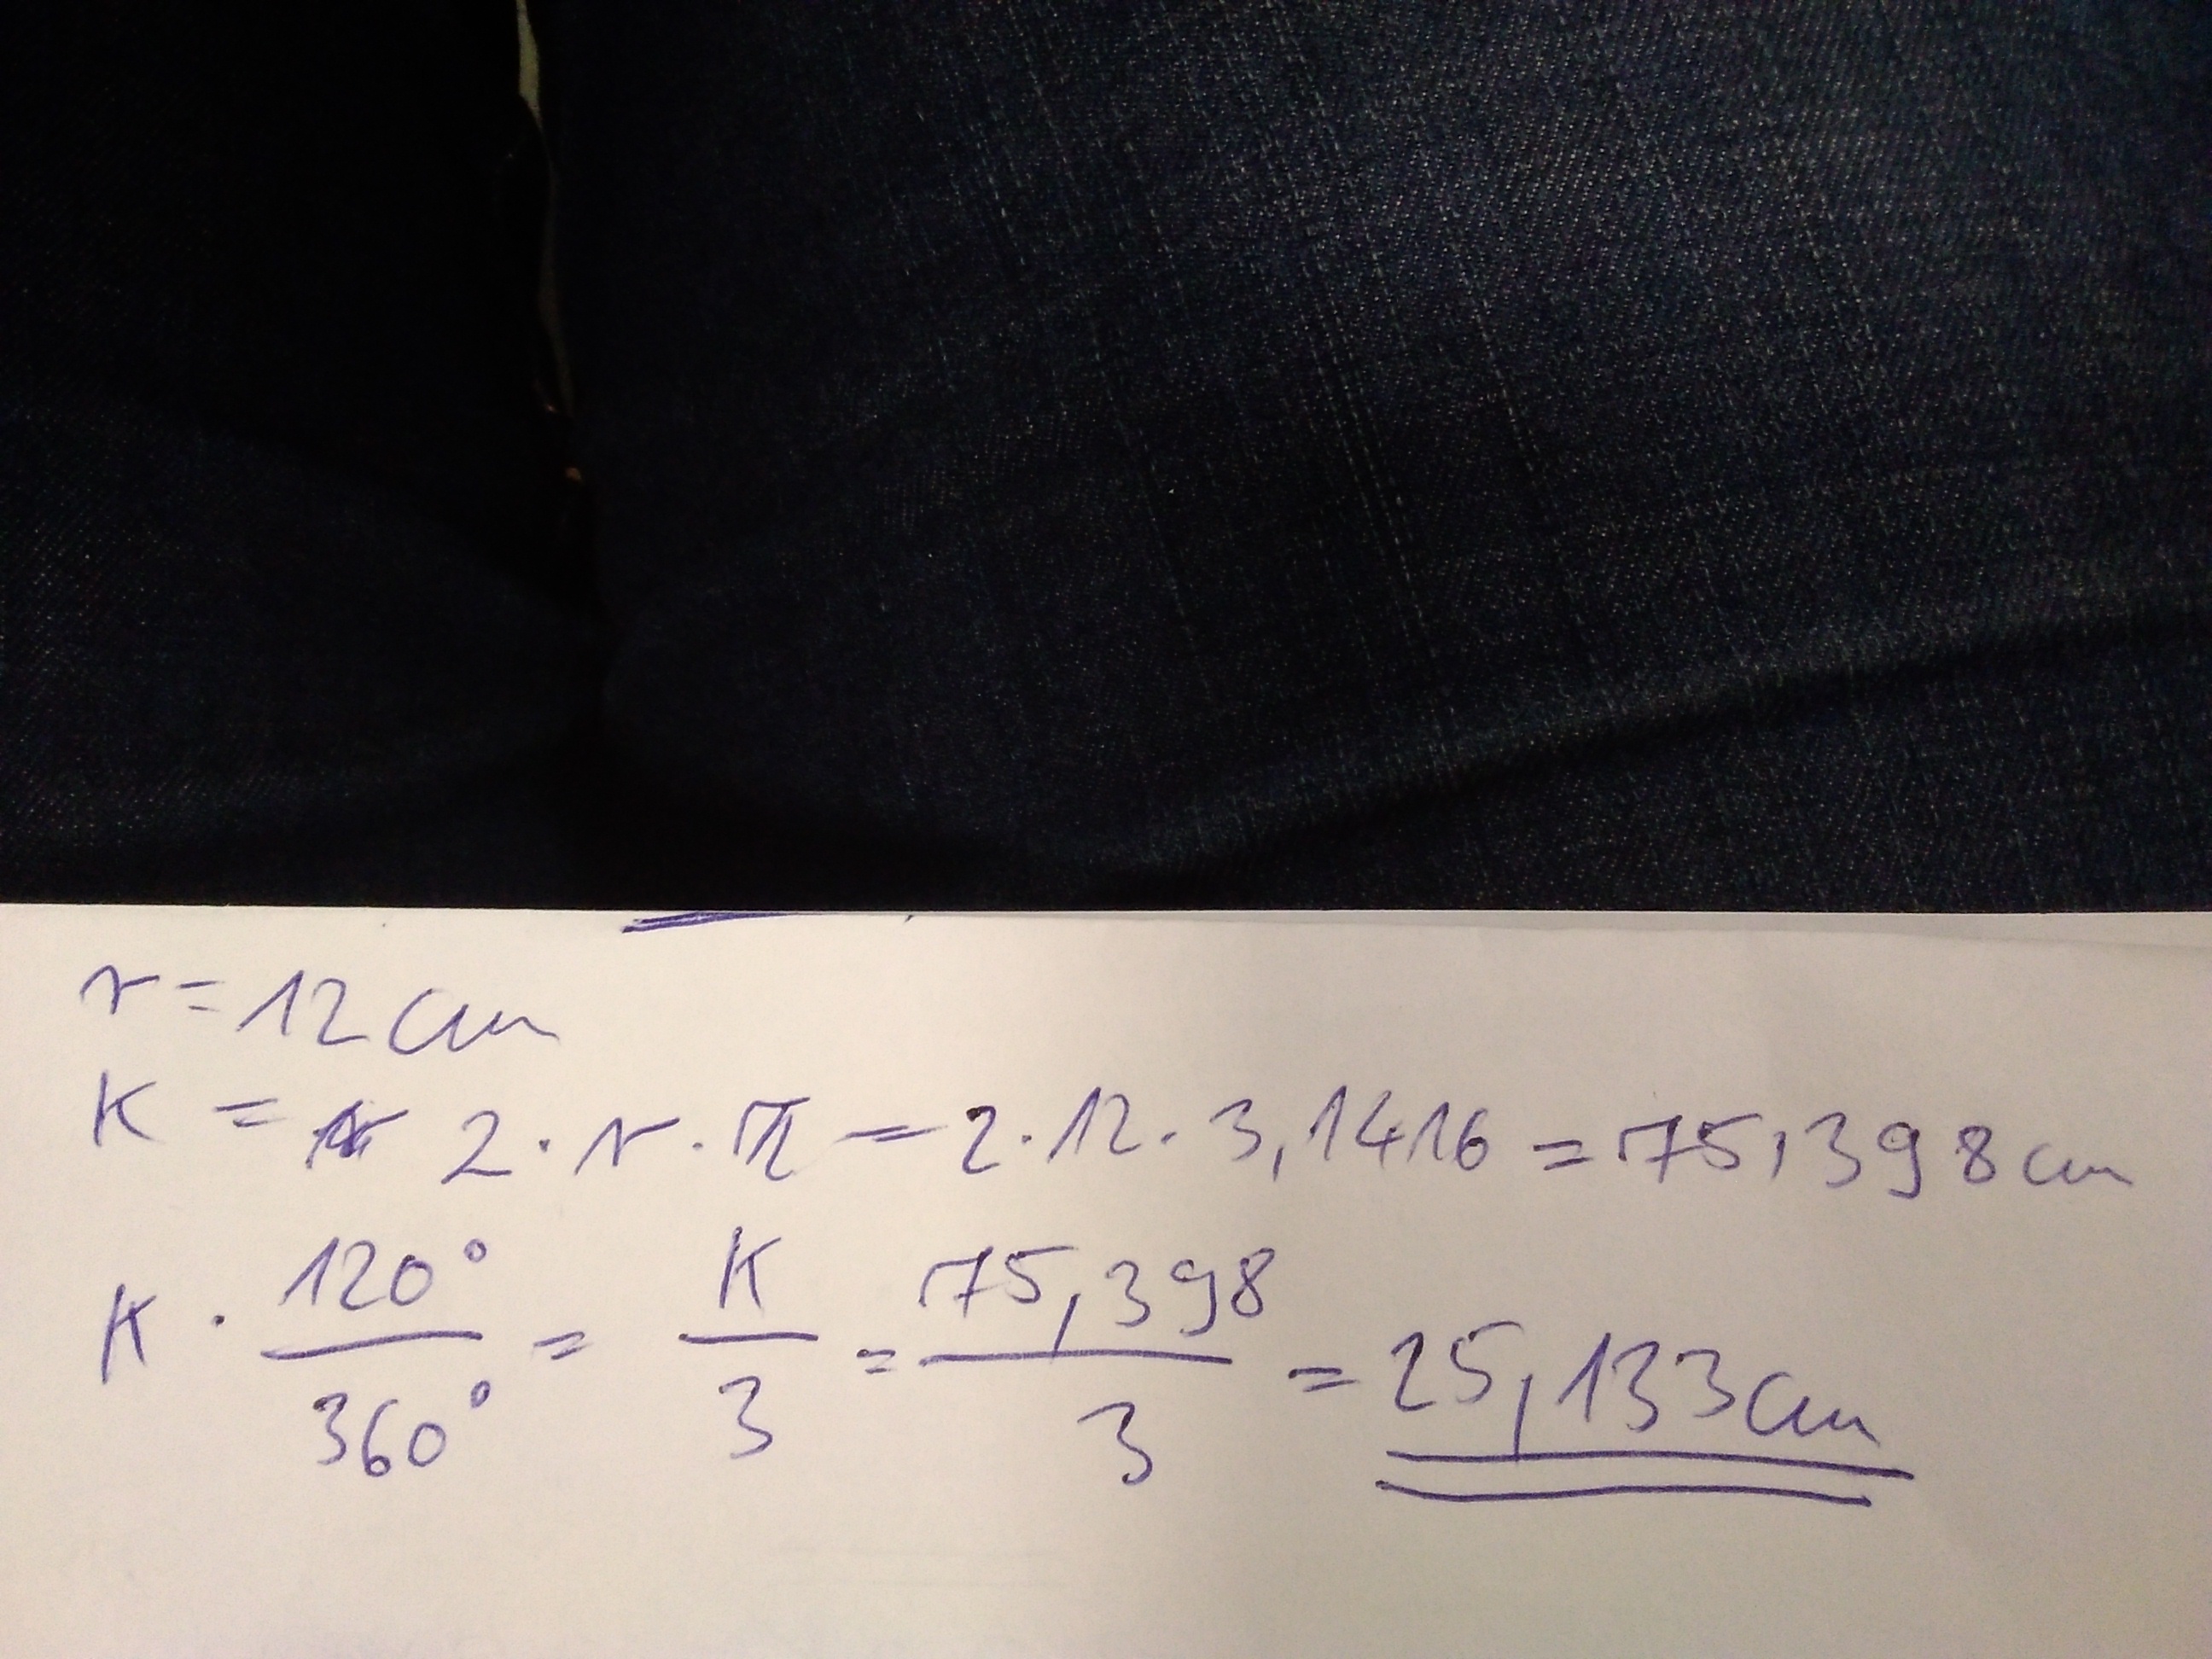 r = 12 cm
K = 2 · r · π = 2 · 12 · 3,1416 = 75,398 cm
K · 120°/360° = K/3 = 75,398/3 = 25,133 cm